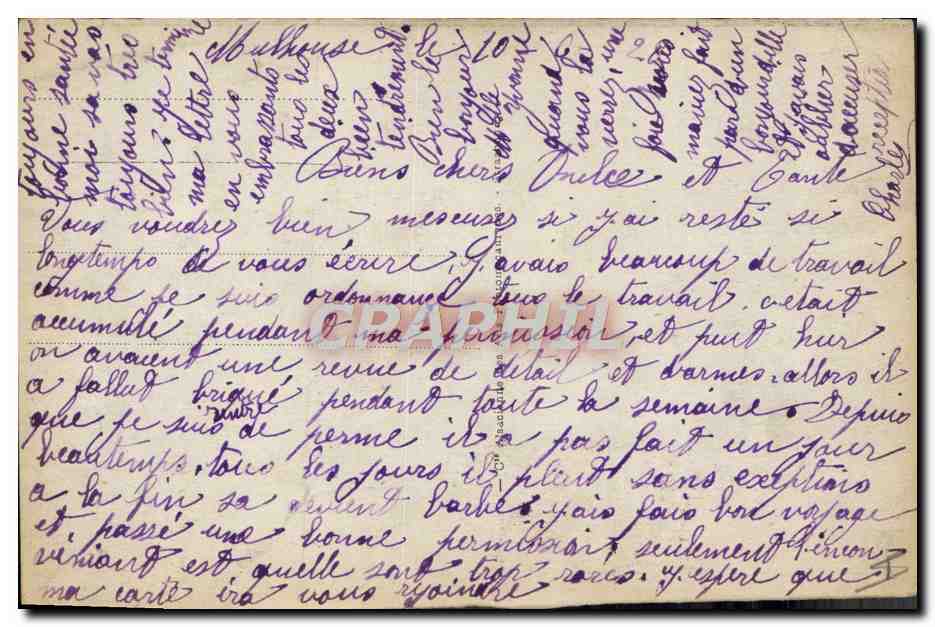 Mulhouse, le 10
Biens chers Oncle et Tante
Vous voudrez bien mescuser si j'ai resté si
longtemps de vous écrire, J'avais beaucoup de travail
comme je suis ordonnance tous le travail c'était
accumulé pendant ma permission, et puit hur
on avaient une revue de détail et d'armes. allors il
a fallut briqué pendant toute la semaine. Depuis
que je suis rentré de perme il a pas fait un jour
beautemps, tous les jours il pleut sans exeptions
a la fin sa devient barbe. j'ais fais bon voyage
et passé une bonne permission, seulement l'incon
véniant est quelle sont trop rares. J'espere que
ma carte ira vous rejoindre
toujours en
bonne santé
moi sa vas
toujours tres
bien je termine
ma lettre
en vous
embrassants
tous les
deux
bien
tendrement.
Bien le
bonjour
Melle
Yvonne
quand
vous la
verrez, une
mainez fait
pardon
bonjour
j'avais
oublier
d'accuser
réception
Charles
CPAPHIL